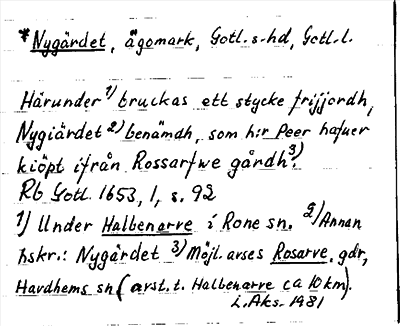 *Nygärdet, ägomark, Gotl. s. hd, Gotl. l.
Härunder 1) bruckas ett stycke frijjordh,
Nygiärdet 2) benämdh, som h:r Peer hafuer
kiöpt ifrån Rossarfwe gårdh. 3)
Rb Gotl. 1653, 1, s. 92
1) Under Halbenarve i Rone sn. 2) Annan
hskr.: Nygärdet 3) Möjl. avses Rosarve, gdr,
Havdhems sn (avst. t. Halbenarve ca 10 km).
L. Aks. 1981